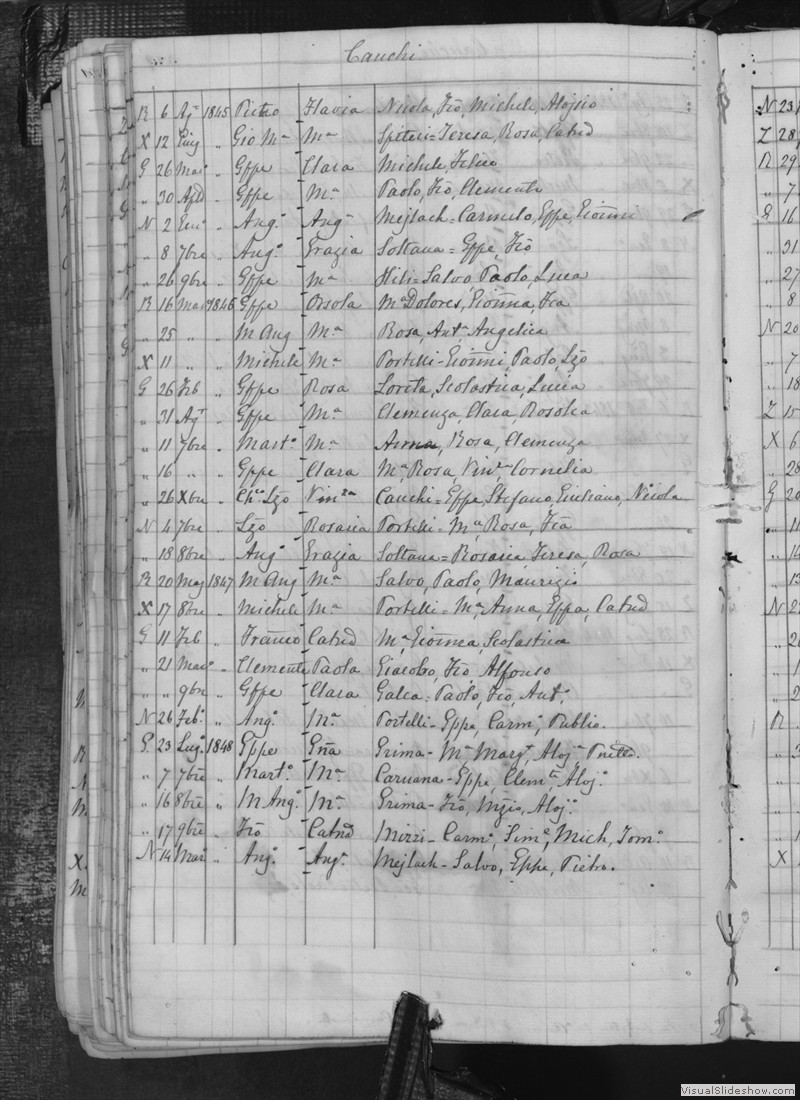 Cauchi
R 6 Agt 1845 Pietro Flavia Nicola, Frõ, Michele, Alojsio
X 12 Giug „ Gio Ma Ma Spiteri = Teresa, Rosa, Catnd
G 26 Mar „ Gppe Clara Michele, Felice
„ 30 „ Gppe Ma Paolo, Frõ, Clemente
N 2 „ Ango Anga Mejlach = Carmelo, Gppe, Giõnni
„ 8 7bre „ Ango Grazia Soltana = Gppe, Frõ
„ 26 9bre „ Gppe Ma Hili = Salvo, Paolo, Luca
R 16 Mar 1846 Gppe Orsola Ma Dolores, Giõnna, Frã
„ 25 „ „ M Ang Ma Rosa, Anta Angelica
X 11 „ „ Michele Ma Portelli = Giõnni, Paolo, Lzõ
G 26 Feb „ Gppe Rosa Loreta, Scolastica, Lucia
„ 31 Agt „ Gppe Ma Clemenza, Clara, Rosolia
„ 11 7bre „ Marto Ma Anna, Rosa, Clemenza
„ 16 „ „ Gppe Clara Ma Rosa, Cornelia
„ 26 Xbre „ Lzõ Cauchi = Gppe, Stefano, Giuliano, Nicola
N 4 7bre „ Lzõ Rosaria Portelli = Ma Rosa, Frã
„ 18 8bre „ Ango Grazia Soltana = Rosaria, Teresa, Rosa
R 20 Mag 1847 M Ang Ma Salvo, Paolo, Maurizio
X 17 8bre „ Michele Ma Portelli = Ma Anna, Gppa, Catnd
G 11 Feb „ Franco Catnd Ma Giõnna, Scolastica
„ 21 Mar „ Clemente Paola Giacobo, Frõ, Alfonso
„ „ 9bre „ Gppe Clara Galea = Paolo, Frõ, Ant.
N 26 Feb. „ Ango Ma Portelli = Gppe, Carmo, Publio.
G 23 Lugo 1848 Gppe Gña Grima = Ma Margt, Aloja
„ 7 7bre „ Marto Ma Caruana = Gppe, Clemte, Alojo
„ 16 8bre „ M Ango Ma Grima = Frõ, Alojo
„ 17 9bre „ Frõ Catnd Mizzi = Carmo, Mich, Tomo
N 14 Mar „ Ango Anga Mejlach = Salvo, Gppe, Pietro.
N 23
Z 28
R 29
„ 7
G 16
„ 31
„ 27
„ 8
N 20
„ 7
„ 18
Z 15
X 6
„ 28
G 20
„ 11
„ 14
„ 13
N 22
R
X
VisualSlideshow.com